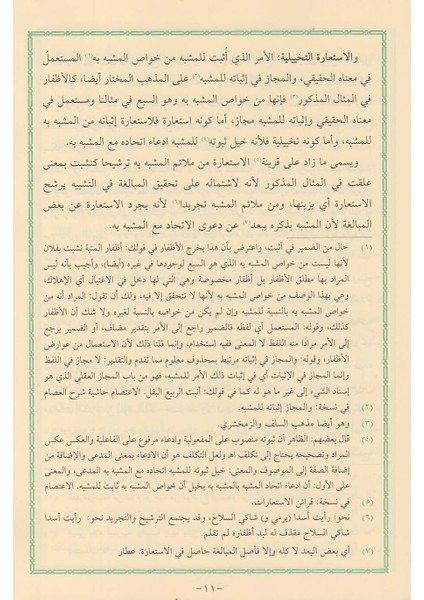 والاستعارة التخييلية: الأمر الذي أثبت للمشبه من خواص المشبه به(١) المستعملُ
في معناه الحقيقي، والمجاز في إثباته للمشبه(٢) على المذهب المختار أيضا، كالأظفار
في المثال المذكور(٣) فإنها من خواص المشبه به وهو السبع في مثالنا ومستعمل في
معناه الحقيقي وإثباته للمشبه مجاز، أما كونه استعارة فلاستعارة إثباته من المشبه به
للمشبه، وأما كونه تخييلية فلأنه خيل ثبوته(٤) للمشبه ادعاء اتحاده مع المشبه به.
ويسمى ما زاد على قرينة(٥) الاستعارة من ملائم المشبه به ترشيحا كنشبت بمعنى
علقت في المثال المذكور لأنه لاشتماله على تحقيق المبالغة في التشبيه يرشح
الاستعارة أي يزينها، ومن ملائم المشبه تجريدا(٦) لأنه يجرد الاستعارة عن بعض
المبالغة لأن المشبه بذكره يبعد(٧) عن دعوى الاتحاد مع المشبه به.
(١) حال من الضمير في أثبت، واعترض بأن هذا يخرج الأظفار في قولك: أظفار المنية نشبت بفلان
لأنها ليست من خواص المشبه به الذي هو السبع لوجودها في غيره (أيضا)، وأجيب بأنه ليس
المراد بها مطلق الأظفار بل أظفار مخصوصة وهي التي لها دخل في الاغتيال أي الإهلاك،
وهي بهذا الوصف من خواص المشبه به لأنها لا تتحقق إلا فيه، ولك أن تقول: المراد أنه من
خواص المشبه به بالنسبة للمشبه وإن لم يكن من خواصه بالنسبة لغيره ولا شك أن الأظفار
كذلك، وقوله: المستعمل أي لفظه فالضمير راجع إلى الأمر بتقدير مضاف، أو الضمير يرجع
إلى الأمر مرادا منه اللفظ لا المعنى ففيه استخدام، وإنما قلنا ذلك لأن الاستعمال من عوارض
الأظفار، وقوله: والمجاز في إثباته مرتبط بمحذوف معلوم مما تقدم والتقدير: لا مجاز في اللفظ
وإنما المجاز في الإثبات أي في إثبات ذلك الأمر للمشبه، فهو من باب المجاز العقلي الذي هو
إسناد الشيء إلى غير ما هو له كما في قولك: أنبت الربيع البقل. الاعتصام حاشية شرح العصام
(٢) في نسخة: والمجاز إثباته للمشبه.
(٣) وهو أيضا مذهب السلف والزمخشري.
(٤) قال بعضهم: الظاهر أن ثبوته منصوب على المفعولية وادعاء مرفوع على الفاعلية والعكس عكس
المراد وتصحيحه يحتاج إلى تكلف اهـ ولعل التكلف هو أن الادعاء بمعنى المدعى والإضافة من
إضافة الصفة إلى الموصوف والمعنى: خيل ثبوته للمشبه اتحاده مع المشبه به المدعى، والمعنى
على الأول: أن ادعاء اتحاد المشبه بالمشبه به يخيل أن خواص المشبه به ثابت للمشبه. الاعتصام
(٥) في نسخة: قرائن الاستعارات.
(٦) نحو: رأيت أسدا (يرمي و) شاكي السلاح، وقد يجتمع الترشيح والتجريد نحو: رأيت أسدا
شاكي السلاح مقذف له لبد أظفاره لم تقلم.
(٧) أي بعض البعد لا كله وإلا فأصل المبالغة حاصل في الاستعارة. عطار
-١١-